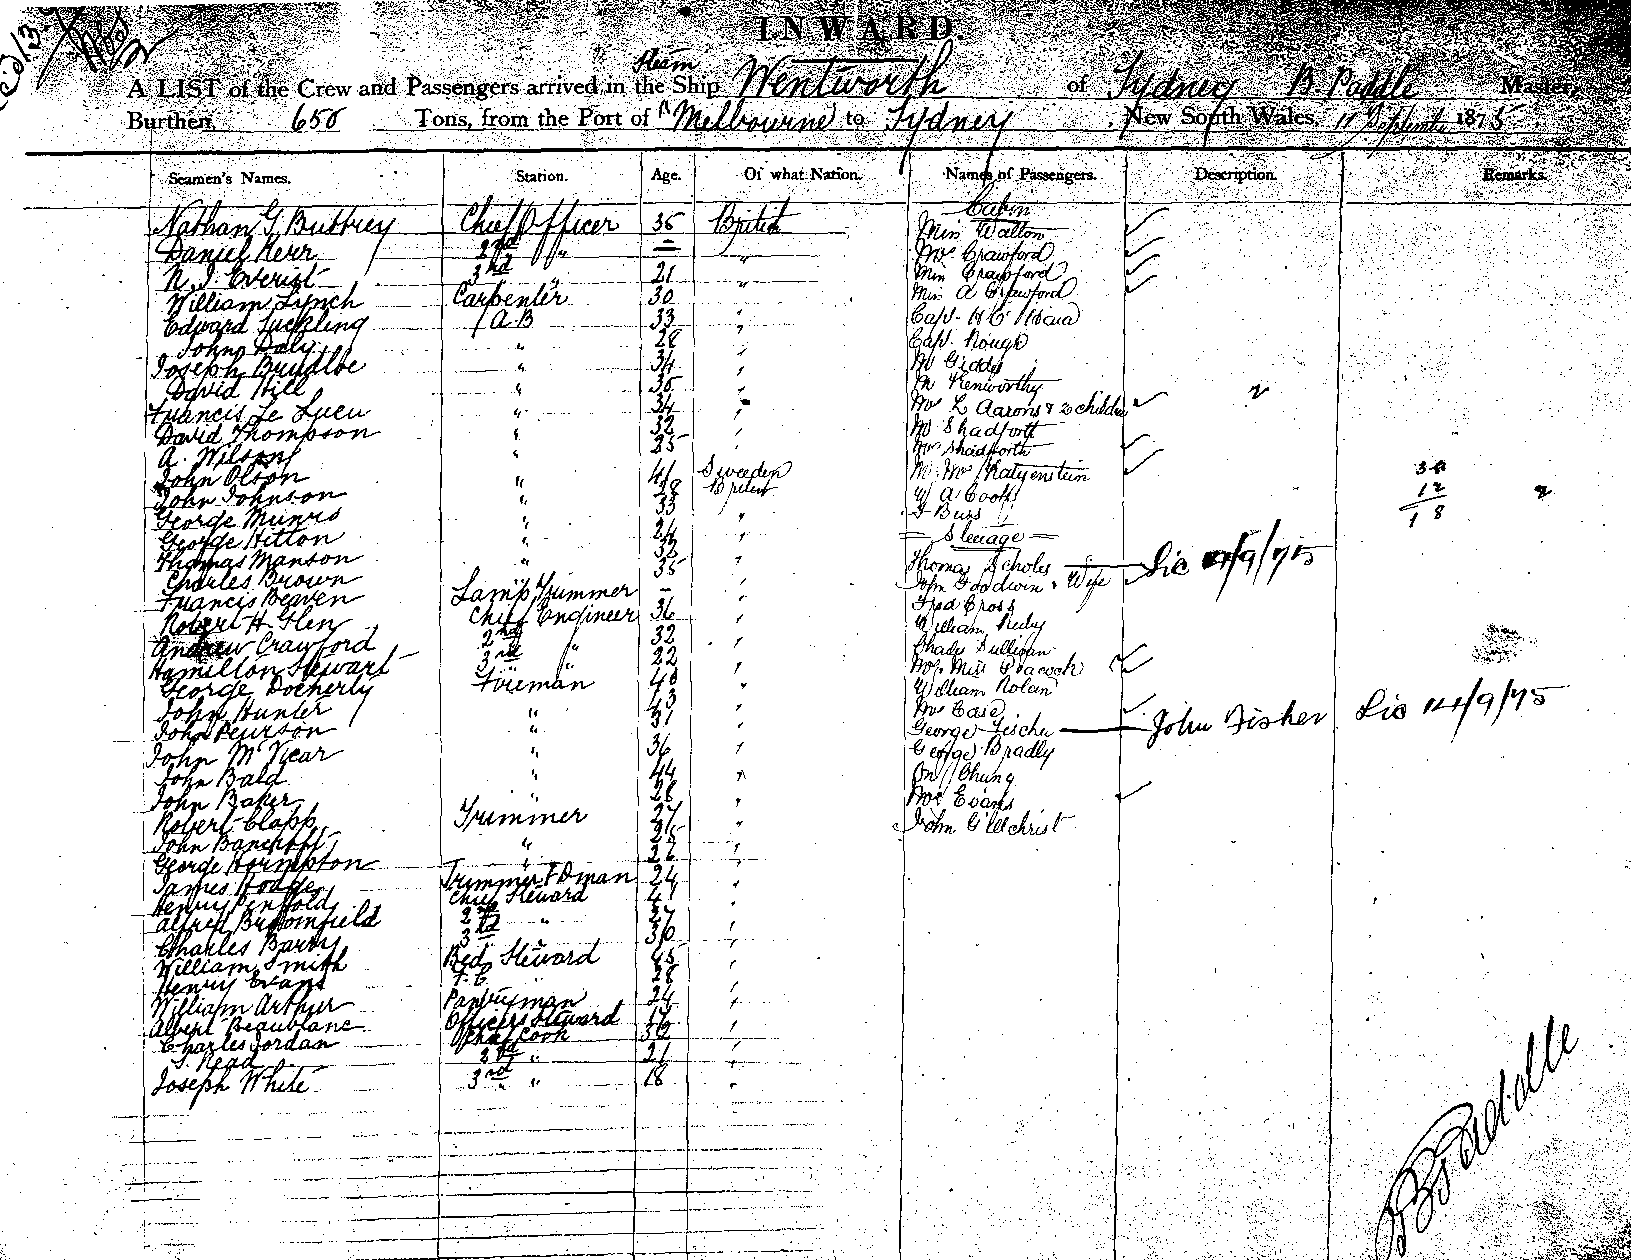 INWARD.
A LIST of the Crew and Passengers arrived in the Steam Ship Wentworth of Sydney B Paddle Master,
Burthen, 650 Tons, from the Port of Melbourne to Sydney New South Wales, 11 September 1875
Seamen's Names. Station. Age. Of what Nation. Names of Passengers. Description. Remarks.
Cabin
Nathan G Buttrey Chief Officer 35 British Miss Walton
Daniel Kerr 2nd " — " Mrs Crawford
N. J. Everist 3rd " 21 " Miss Crawford
William Lynch Carpenter 30 Miss A Crawford
Edward Suckling A.B 33 " Capt. H C
John Daly " 28 " Capt. Rough
Joseph " 34 " Mr Giddy
David Hill " 35 " Mr Kenworthy
Francis Le Sueu " 34 " Mrs L Aarons & 2 children
David Thompson " 32 " Mr Shadforth
A. Wilson " 25 Mrs Shadforth
John Olson " 41 Sweeden Mr. Mrs Katzenstein 30
John Johnson " 28 British W A Cook 12
George Munro " 33 " F Buss 18
George Hitton " 24 " Steerage
Thomas Manson " 32 " Thomas Scholes
Charles Brown " 35 " John Goodwin & Wife
Francis Beaven Lamp Trimmer — " Fred Cross
Robert H. Glen Chief Engineer 36 " William Ruby
Andrew Crawford 2nd " 32 " Chads Sullivan
Hamilton Stewart 3rd " 22 " Miss Peacock
George Docherty Fireman 40 " William Nolan
John Hunter " 43 Mrs Case
John Pearson " 31 George Fischer — John Fisher Sic 14/9/75
John McVicar " 36 " George Bradly
John Bald " 44 " On Chung
John Baker " 28 " Mrs Evans
Robert Clapp Trimmer 27 " John Gilchrist
John Bancroft " 25
George Hormpton " 22
James Hodge Trimmer & Dman 24 "
Henry Penfold Chief Steward 41 "
Alfred Broomfield 2nd " 27 "
Charles Barry 3rd 30 "
William Smith Bed. Steward 45 "
Henry Evans F. C " 28 "
William Arthur Pantryman 24 "
Albert Beaublanc Officers Steward 17 "
Charles Jordan Chief Cook 32 "
Read 2nd " 21 "
Joseph White 3rd " 18 "
B Paddle